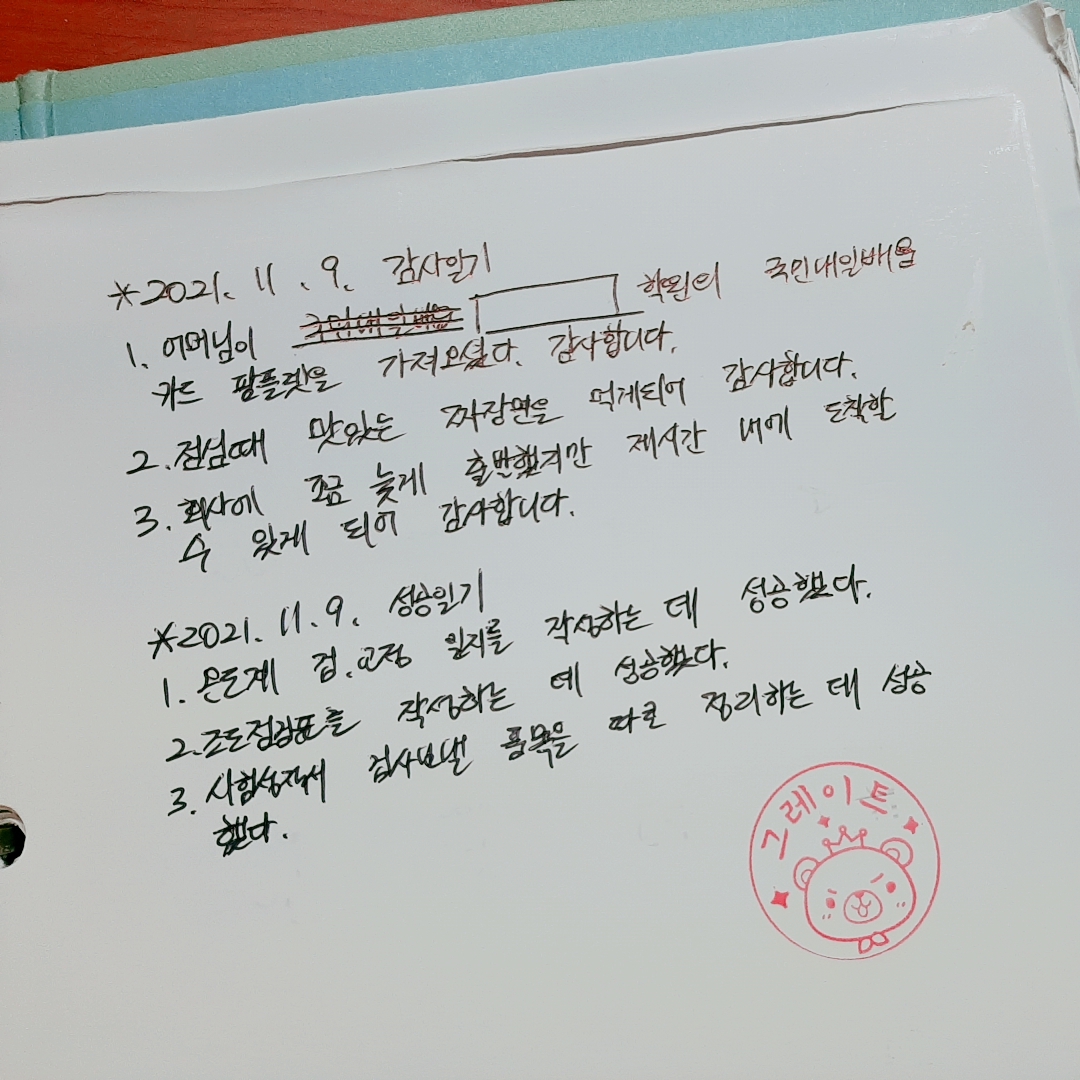 *2021. 11. 9. 감사일기
1. 어머님이 국민내일배움 학원의 국민내일배움
카드 팜플렛을 가져오셨다. 감사합니다.
2. 점심때 맛있는 짜장면을 먹게되어 감사합니다.
3. 회사에 조금 늦게 출발했지만 제시간 내에 도착할
수 있게 되어 감사합니다.
*2021. 11. 9. 성공일기
1. 온도계 검.교정 일지를 작성하는 데 성공했다.
2. 조도점검표를 작성하는 데 성공했다.
3. 시험성적서 검사보낼 품목을 따로 정리하는 데 성공
했다.
그레이트